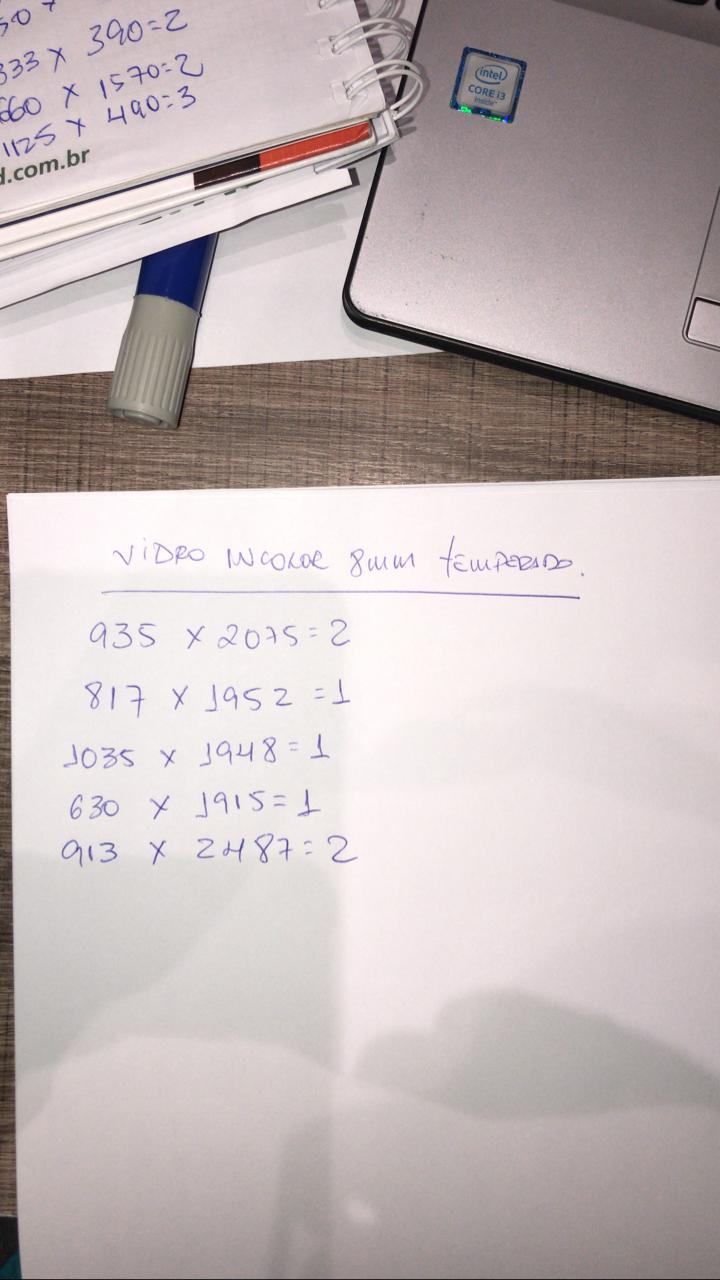 333 x 390=2
660 x 1570=2
1125 x 490=3
d.com.br
intel
CORE i3
inside
VIDRO INCOLOR 8mm TEMPERADO.
935 x 2075=2
817 x 1952=1
1035 x 1948=1
630 x 1915=1
913 x 2487=2